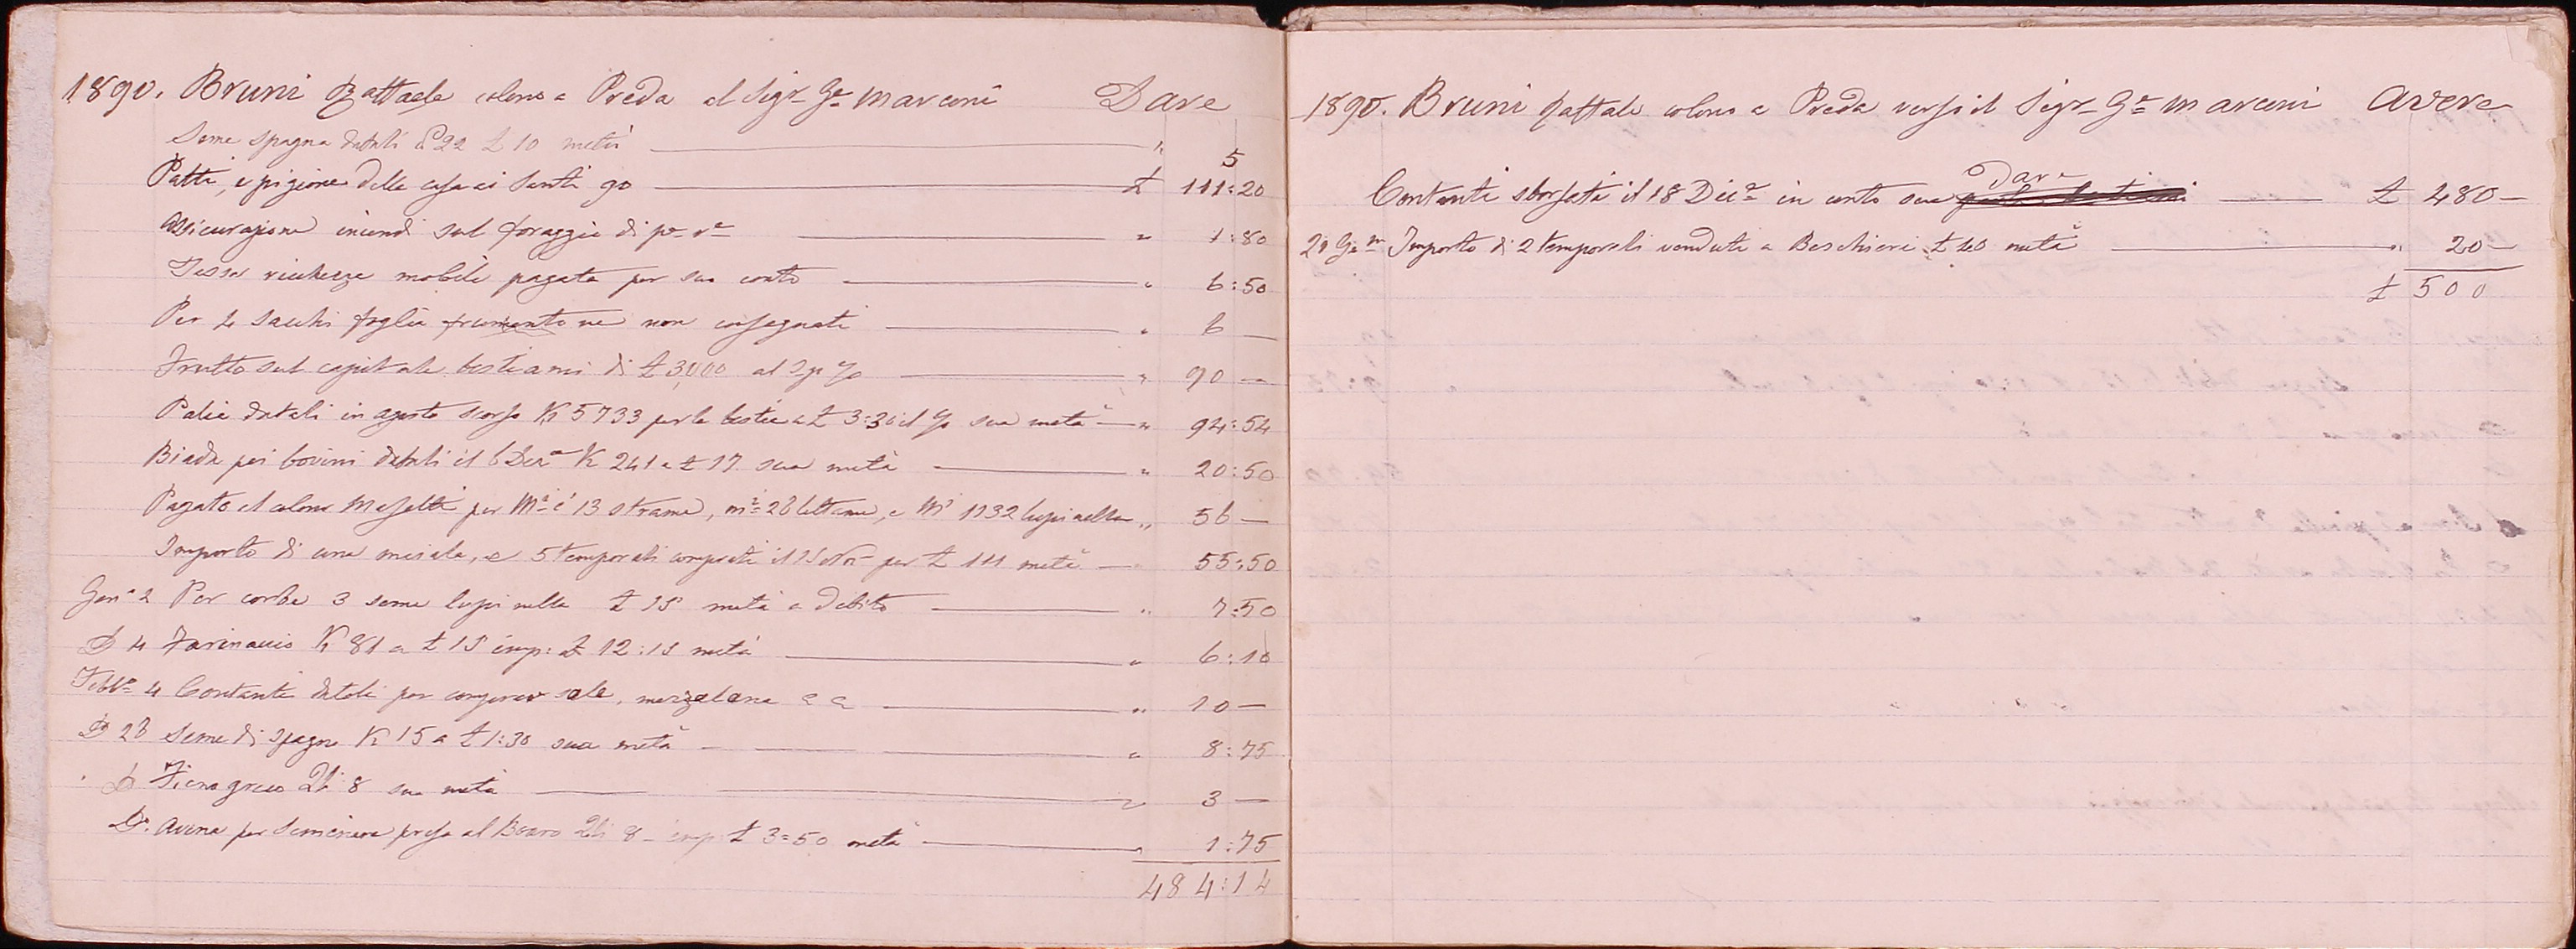 1890. Bruni Raffaele colono a Preda al Sigr Ge Marconi Dare
Seme spagna datali £ 10 metà " 5
Patti, e pigione della casa ai Santi 90 £ 111:20
Assicurazione incendi sul foraggio di " 1:80
Tassa richezza mobile pagata per suo conto " 6:50
Per 4 sacchi foglia frumentone non consegnati " 6 —
Frutto sul capitale bestiami di £ 3,000 al % " 90 —
Palia datali in agosto scorso K 5733 per le bestie a £ 3:30 il % sua metà " 94:54
Biada pei bovini datali il 6 K 241 a £ 17 sua metà " 20:50
Pagato al colono Masetti per 13 strame, lettame, e 1132 lupinella " 56 —
Importo di una maiala, e 5 temporali comprati il per £ 111 metà — 55:50
Gen° 2 Per corbe 3 seme lupinella £ 15 metà a debito " 7:50
D 4 Farinaccio K 81 a £ 15 imp: £ 12:15 metà " 6:10
Febb° 4 Contanti datoli per comperar sale, mezzalana " 10 —
D° 26 Seme di spagna K 15 a £ 1:30 sua metà " 8:75
D° Fieno greco 8 sua metà " 3 —
D°. Avena per seminare presa al 8 — imp £ 3=50 metà " 1:75
484:14
1890. Bruni Raffaele colono a Preda verso il Sigr Ge Marconi Avere
Dare
Contanti sborsati il 18 Dice in conto suo £ 480 —
Importo di 2 temporali venduti a Beschieri £ 40 metà " 20 —
£ 500